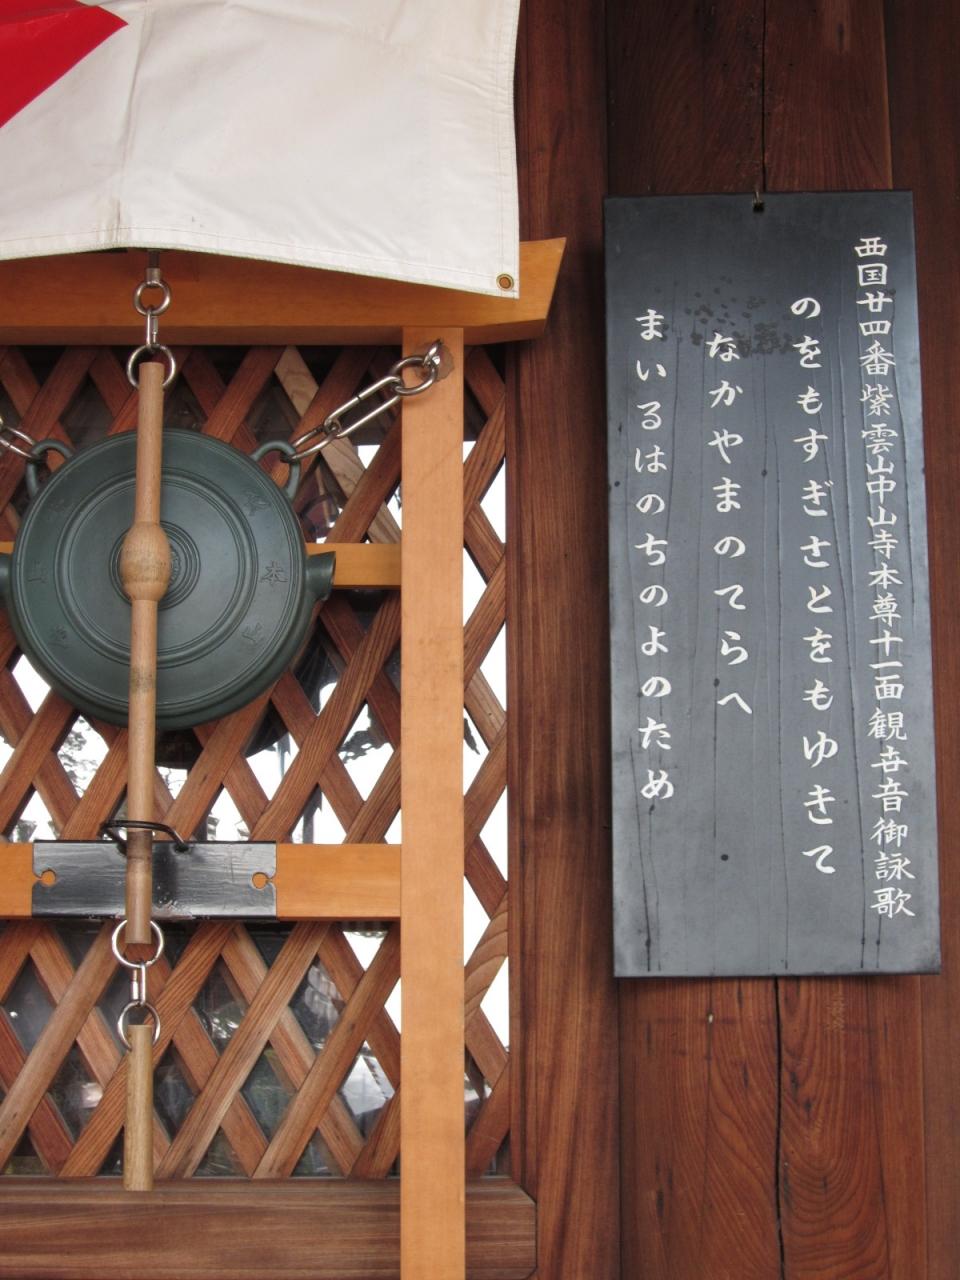 西国廿四番紫雲山中山寺本尊十一面観世音御詠歌
のをもすぎさとをもゆきて
なかやまのてらへ
まいるはのちのよのため
本